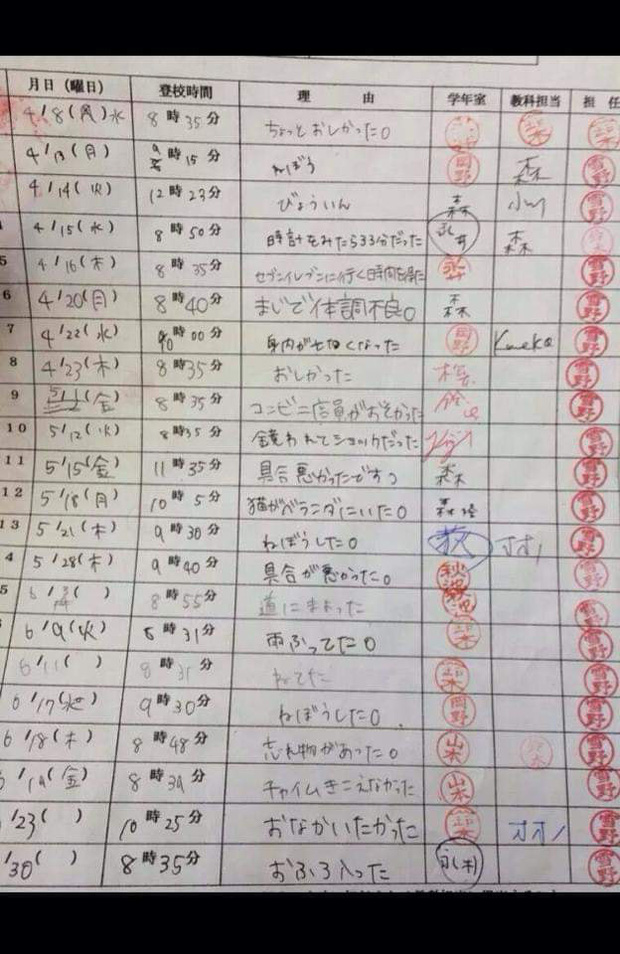 月日（曜日） 登校時間 理由 学年室 教科担当 担任
4/8(月)水 8時35分 ちょっとおしかった。
4/13(月) 9時15分 ねぼう 岡野 森 雪野
4/14(火) 12時23分 びょういん 森 小川 雪野
4/15(水) 8時50分 時計をみたら33分だった 永井 森
5 4/16(木) 8時35 セブンイレブンに行く時間 雪野
6 4/20(月) 8時40分 まじで体調不良。 森 雪野
7 4/22(水) 10時00分 身内が亡くなった 岡野 雪野
8 4/23(木) 8時35分 おしかった 雪野
9 (金) 8時35分 コンビニ店員がおそかった
10 5/12(火) 8時35分 鏡われてショックだった 雪野
11 5/15(金) 11時35分 具合悪かったですつ 森 雪野
12 5/18(月) 10時5分 猫がベランダにいた。 森 雪野
13 5/21(木) 9時30分 ねぼうした。 雪野
4 5/28(木) 9時40分 具合が悪かった。 秋 雪野
5 6/ ( ) 8時55分 道にまよった 雪野
6/9(火) 8時31分 雨ふってた。 雪野
6/11( ) 8時31分 ねてた 雪野
6/17(水) 9時30分 ねぼうした。 岡野 雪野
6/18(木) 8時48分 忘れ物があった。 山本 雪野
/19(金) 8時39分 チャイムきこえなかった 山本 雪野
/23( ) 10時25分 おなかいたかった オオノ 雪野
/30( ) 8時35分 おふろ入った 雪野